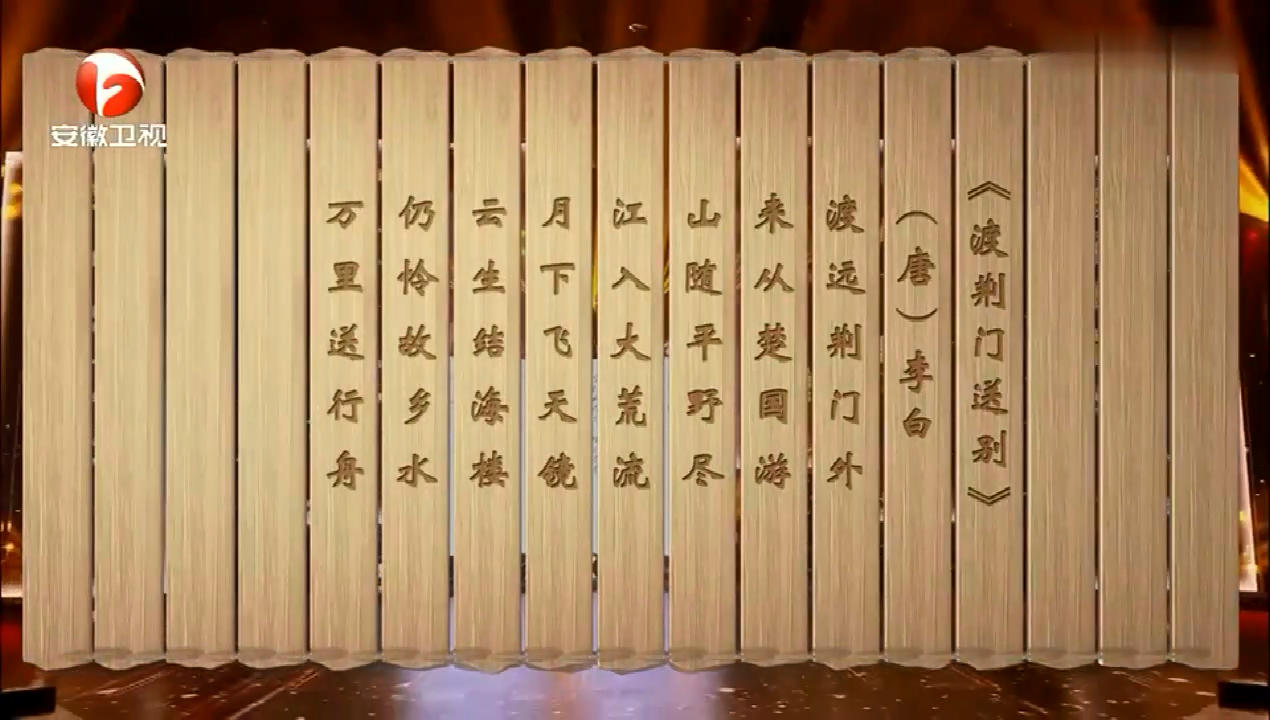 安徽卫视
《渡荆门送别》
（唐）李白
渡远荆门外
来从楚国游
山随平野尽
江入大荒流
月下飞天镜
云生结海楼
仍怜故乡水
万里送行舟